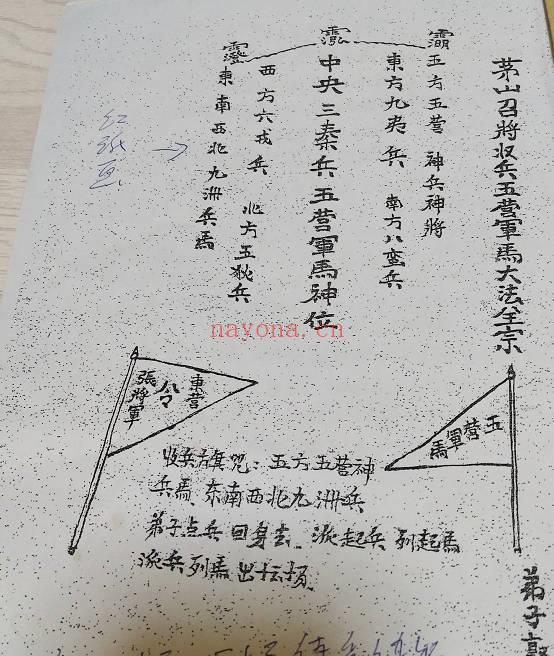 茅山召將收兵五营軍馬大法全宗
五方五营 神兵神將
東方九夷兵 南方八蛮兵
中央三秦兵五营軍馬神位
西方六戎兵 北方五狄兵
東南西北九洲兵馬
红纸画
nayona.cn
張將軍
令
東营
五营軍馬
收兵旗咒：五方五营神
兵馬 东南西北九洲兵
弟子点兵回身去 派起兵 列起馬
派兵列馬出坛场
弟子